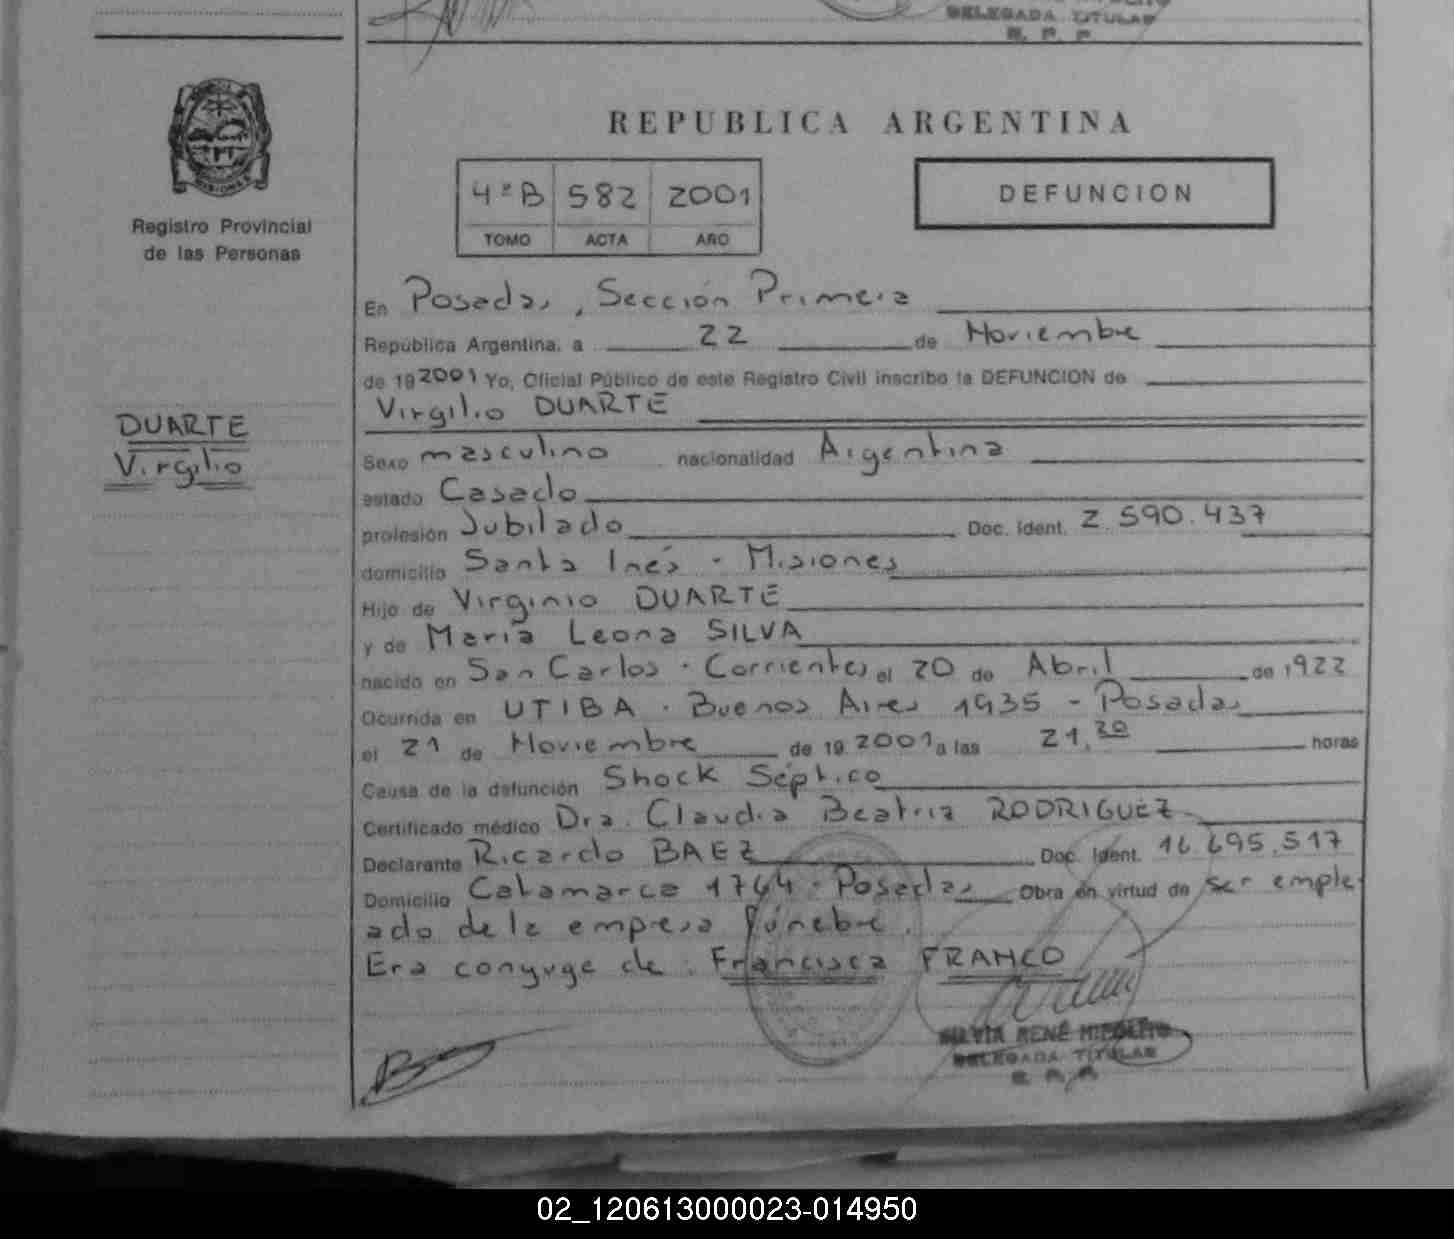 DELEGADA TITULAR
R. P. P.
MISIONES
Registro Provincial
de las Personas
DUARTE
Virgilio
REPUBLICA ARGENTINA
4º B 582 2001
TOMO ACTA AÑO
DEFUNCION
En Posadas, Sección Primera
República Argentina, a 22 de Noviembre
de 19 2001 Yo, Oficial Público de este Registro Civil inscribo la DEFUNCION de
Virgilio DUARTE
Sexo masculino nacionalidad Argentina
estado Casado
profesión Jubilado Doc. Ident. 2.590.437
domicilio Santa Inés - Misiones
Hijo de Virginio DUARTE
y de María Leona SILVA
nacido en San Carlos - Corrientes el 20 de Abril de 1922
Ocurrida en UTIBA - Buenos Aires 1935 - Posadas
el 21 de Noviembre de 19 2001 a las 21,30 horas
Causa de la defunción Shock Séptico
Certificado médico Dra. Claudia Beatriz RODRIGUEZ
Declarante Ricardo BAEZ Doc. Ident. 16.695.517
Domicilio Catamarca 1764 - Posadas Obra en virtud de ser emple-
ado de la empresa fúnebre.
Era conyuge de: Francisca FRANCO
SILVIA RENÉ HIPOLITO
DELEGADA TITULAR
R. P. P.
02_120613000023-014950